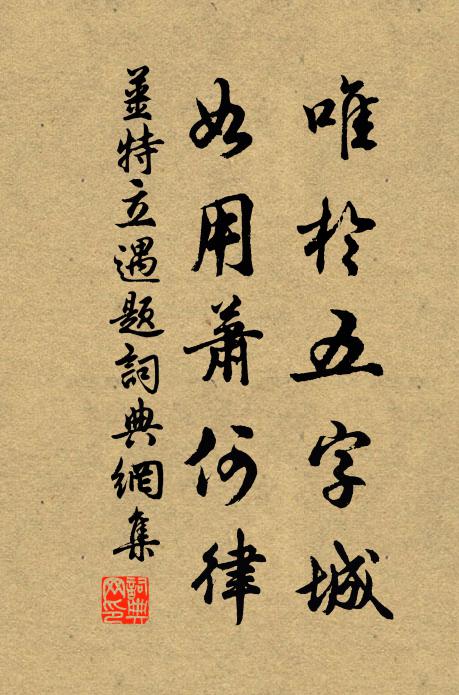 唯於五字城
如用蕭何律
薑特立遇題詞典網集
詞典网印